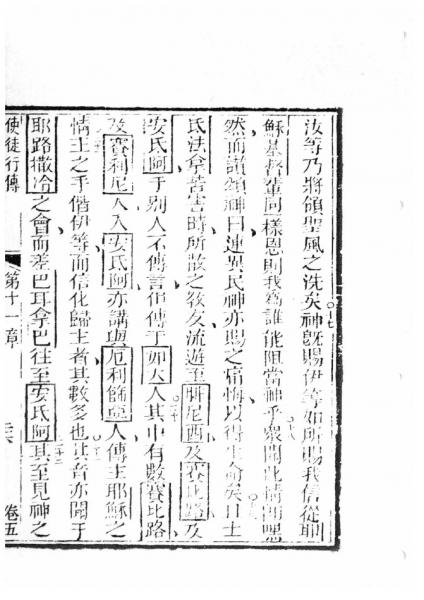 汝等乃將領聖風之洗矣神既賜伊等如所賜我信從耶
穌基督輩同一樣恩則我為誰能阻當神乎眾聞此情即嘿
然而讚頌神曰連異民神亦賜之痛悔以得生命矣且士
氏法拿苦害時所散之教友流遊至腓尼西及賽比路及
安氏阿于别人不傳言但傳于如大人其中有數賽比路
及賽利尼人入安氏阿亦講與厄利篩亞人傳主耶穌之
情主之手偕伊等而信化歸主者其數多也此音亦聞于
耶路撒冷之會而差巴耳拿巴往至安氏阿其至見神之
使徒行傳 第十一章 卷五